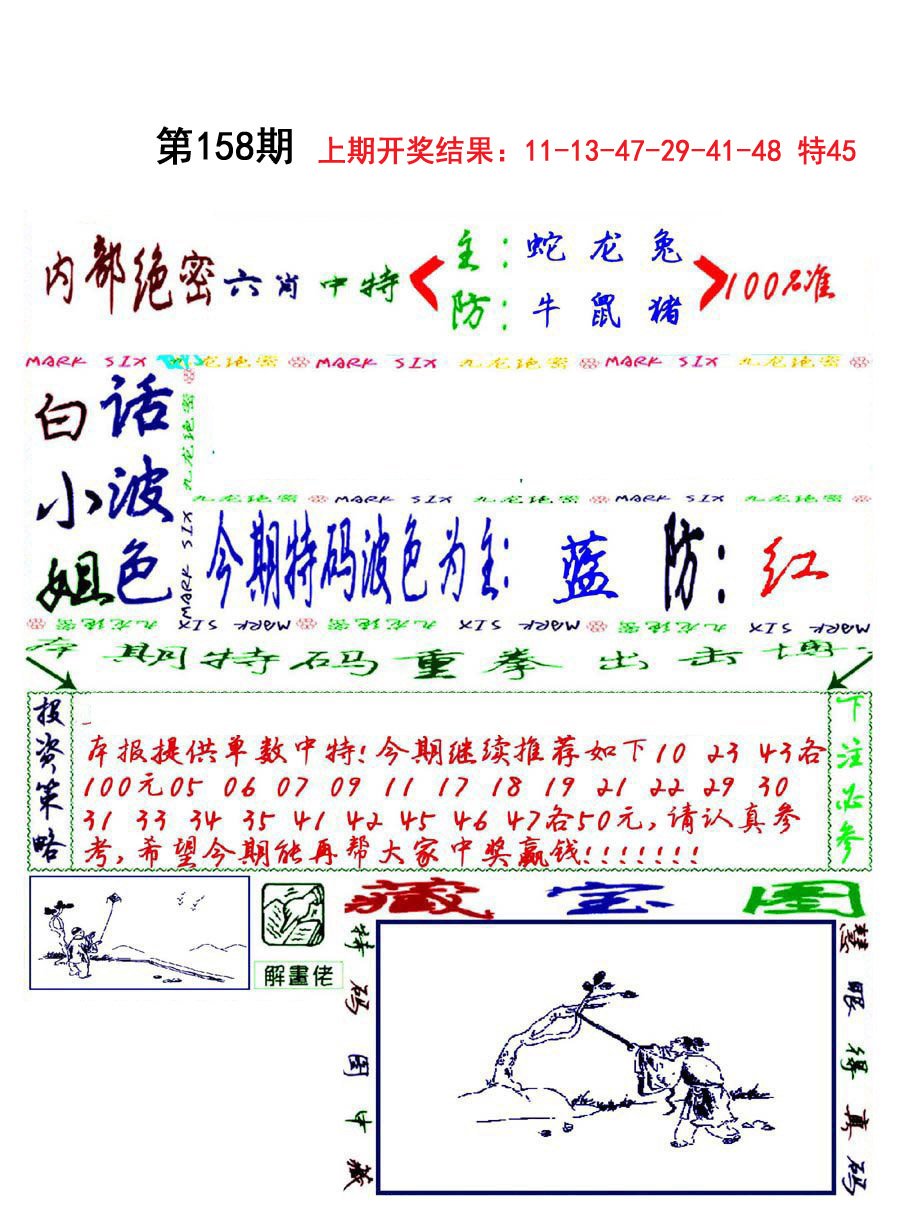 第158期 上期开奖结果：11-13-47-29-41-48 特45
内部绝密六肖中特
主：蛇龙兔
防：牛鼠猪
100%准
MARK SIX 九龙绝密 MARK SIX 九龙绝密 MARK SIX 九龙绝密
白话
小波
姐色
九龙绝密 MARK SIX
九龙绝密 MARK SIX 九龙绝密 MARK SIX 九龙绝密
今期特码波色为主：蓝 防：红
九龙绝密 MARK SIX 九龙绝密 MARK SIX 九龙绝密 MARK SIX
本期特码重拳出击博
投资策略
本报提供单数中特!今期继续推荐如下10 23 43各
100元05 06 07 09 11 17 18 19 21 22 29 30
31 33 34 35 41 42 45 46 47各50元,请认真参
考,希望今期能再帮大家中奖赢钱!!!!!!!
下注必参
解畫佬
藏宝图
特码图中藏
慧眼得真码